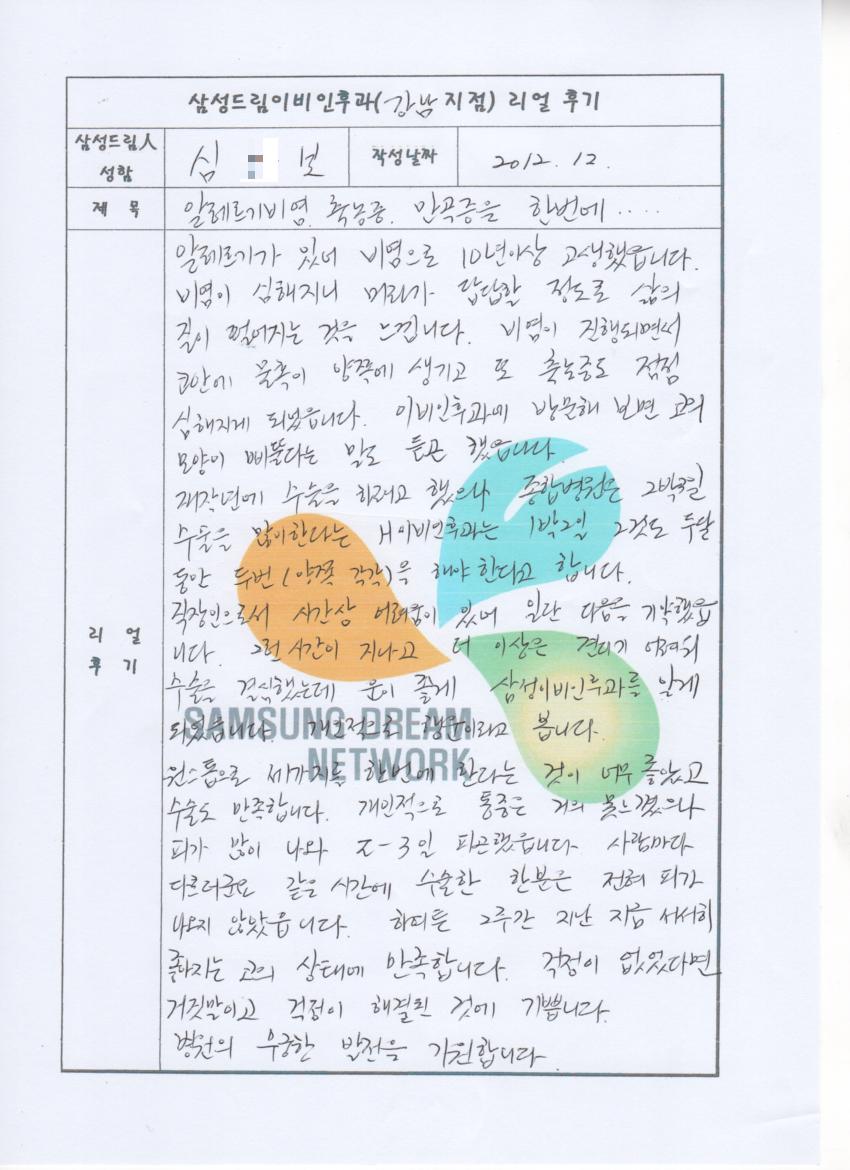 삼성드림이비인후과(강남지점) 리얼 후기
삼성드림人 성함 심 보 작성날짜 2012. 12.
제 목 알레르기비염, 축농증, 만곡증을 한번에 ....
알레르기가 있어 비염으로 10년이상 고생했읍니다.
비염이 심해지니 머리가 답답할 정도로 삶의
질이 떨어지는 것을 느낍니다. 비염이 진행되면서
코안에 물혹이 양쪽에 생기고 또 축농증도 점점
심해지게 되었읍니다. 이비인후과에 방문해 보면 코의
모양이 삐뚤다는 말도 듣곤 했읍니다.
재작년에 수술을 하려고 했으나 종합병원은 2박3일
수술을 많이한다는 H이비인후과는 1박2일 그것도 두달
동안 두번(양쪽 각각)을 해야한다고 합니다.
직장인으로서 시간상 어려움이 있어 일단 다음을 기약했읍
니다. 그런 시간이 지나고 더 이상은 견디기 어려워
리 얼
후 기
수술을 결심했는데 운이 좋게 삼성이비인후과를 알게
되었읍니다. 개인적으로 행운이라고 봅니다.
SAMSUNG DREAM
NETWORK
원스톱으로 세가지를 한번에 한다는 것이 너무 좋았고
수술도 만족합니다. 개인적으로 통증은 거의 못느꼈으나
피가 많이 나와 2-3일 피곤했읍니다. 사람마다
다르더군요 같은 시간에 수술한 한분은 전혀 피가
나오지 않았읍니다. 하여튼 2주간 지난 지금 서서히
좋아지는 코의 상태에 만족합니다. 걱정이 없었다면
거짓말이고 걱정이 해결된 것에 기쁩니다.
병원의 무궁한 발전을 기원합니다.